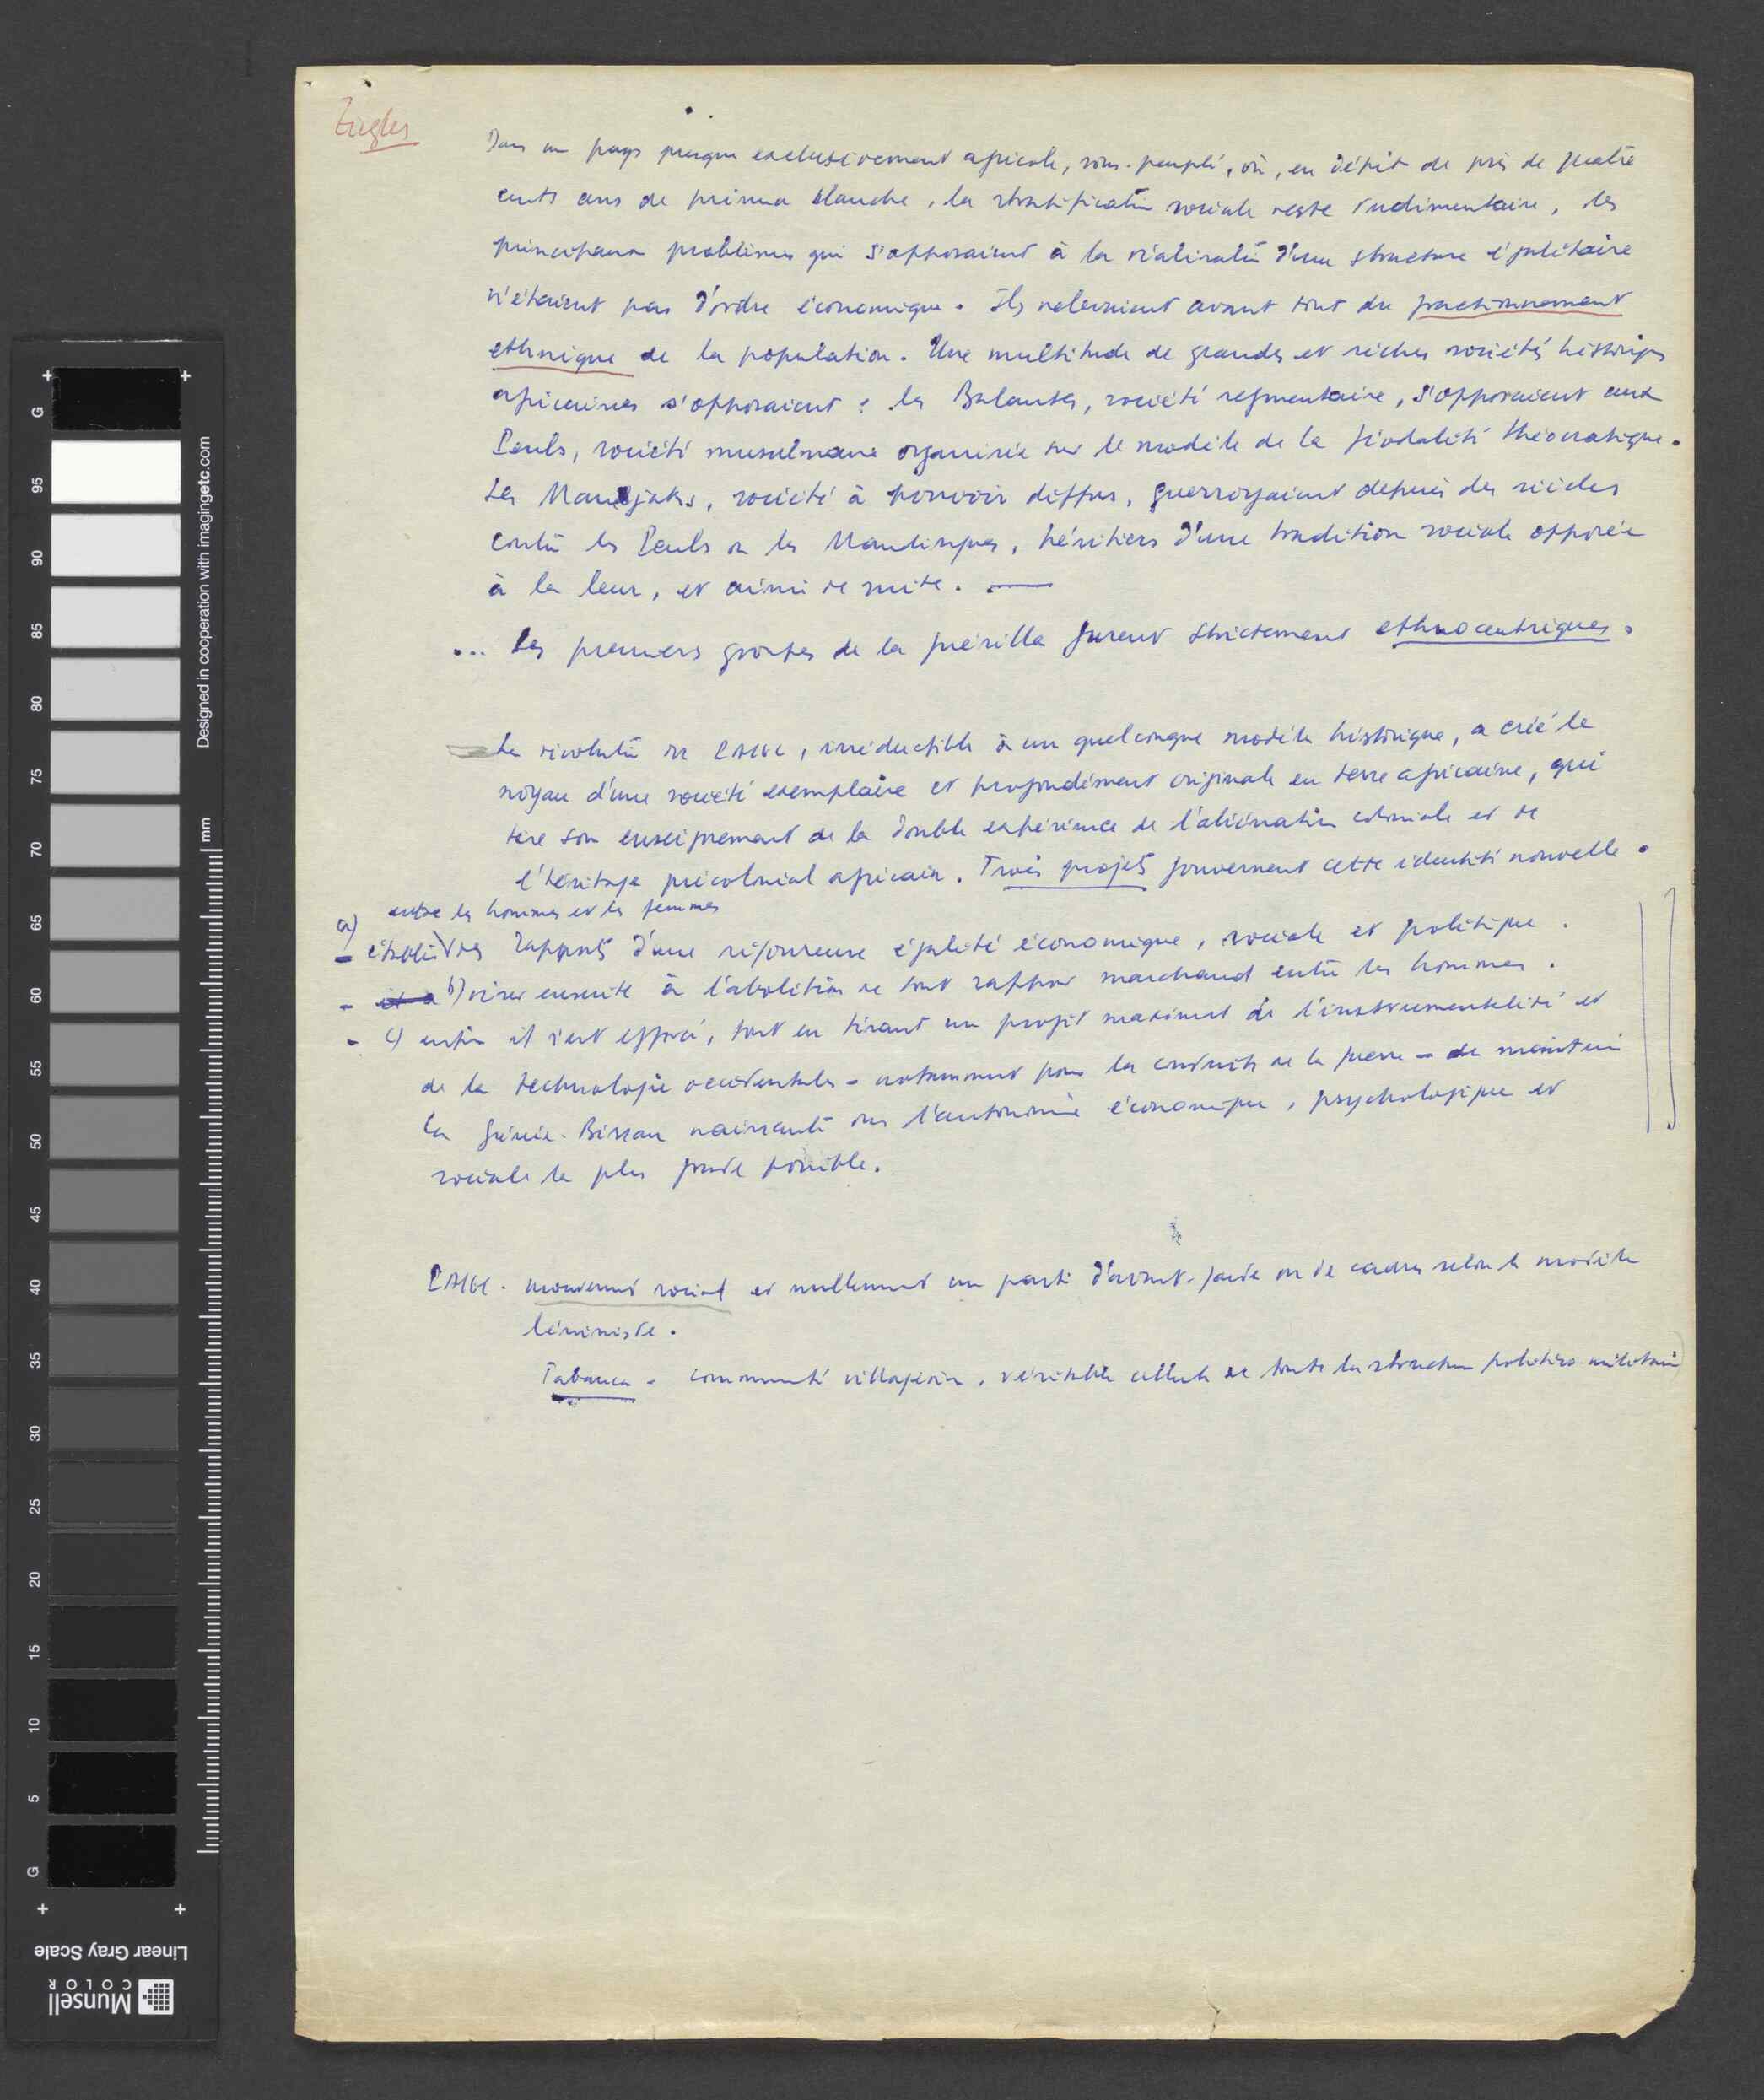 Ziegler
Dans un pays presque exclusivement agricole, sous-peuplé, où, en dépit de près de quatre
cents ans de présence blanche, la stratification sociale reste rudimentaire, les
principaux problèmes qui s'opposaient à la réalisation d'une structure égalitaire
n'étaient pas d'ordre économique. Ils relevaient avant tout du fractionnement
ethnique de la population. Une multitude de grandes et riches sociétés historiques
africaines s'opposaient : les Balantes, société segmentaire, s'opposaient aux
Peuls, société musulmane organisée sur le modèle de la féodalité théocratique.
Les Mandjaks, société à pouvoir diffus, guerroyaient depuis des siècles
contre les Peuls ou les Mandingues, héritiers d'une tradition sociale opposée
à la leur, et ainsi de suite. —
... Les premiers groupes de la guérilla furent strictement ethnocentriques.
La révolution du PAIGC, irréductible à un quelconque modèle historique, a créé le
noyau d'une société exemplaire et profondément originale en terre africaine, qui
tire son enseignement de la double expérience de l'aliénation coloniale et de
l'héritage précolonial africain. Trois projets gouvernent cette identité nouvelle.
entre les hommes et les femmes
a)
- établir des rapports d'une rigoureuse égalité économique, sociale et politique.
- b) viser ensuite à l'abolition de tout rapport marchand entre les hommes.
- c) enfin il s'est efforcé, tout en tirant un profit maximal de l'instrumentalité et
de la technologie occidentales - notamment pour la conduite de la guerre - de maintenir
la Guinée-Bissau naissante dans l'autonomie économique, psychologique et
sociale la plus grande possible.
PAIGC - mouvement social et nullement un parti d'avant-garde ou de cadres selon le modèle
léniniste.
Tabanca - communauté villageoise, véritable cellule de toute la structure politico-militaire
Designed in cooperation with imagingetc.com
mm
G 95 90 85 80 75 70 65 60 55 50 45 40 35 30 25 20 15 10 5 G
Linear Gray Scale
Munsell
COLOR